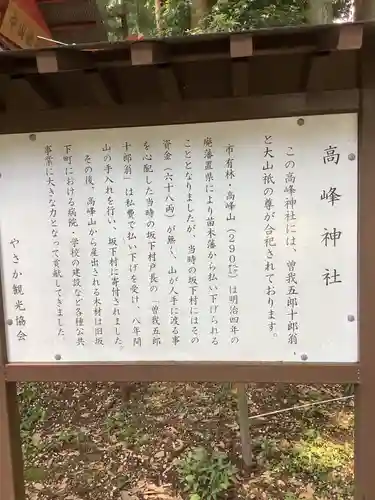 高峰神社
この高峰神社には、曽我五郎十郎翁、
と大山祇の尊が合祀されております。
市有林・高峰山（290㌶）は明治四年の
廃藩置県により苗木藩から払い下げられる
こととなりましたが、当時の坂下村にはその
資金（六十八両）が無く、山が人手に渡る事
を心配した当時の坂下村戸長の「曽我五郎
十郎翁」は私費で払い下げを受け、八年間
山の手入れを行い、坂下村に寄付されました。
その後、高峰山から産出される木材は旧坂
下町における病院、学校の建設など各種公共
事業に大きな力となって貢献してきました。
やさか観光協会